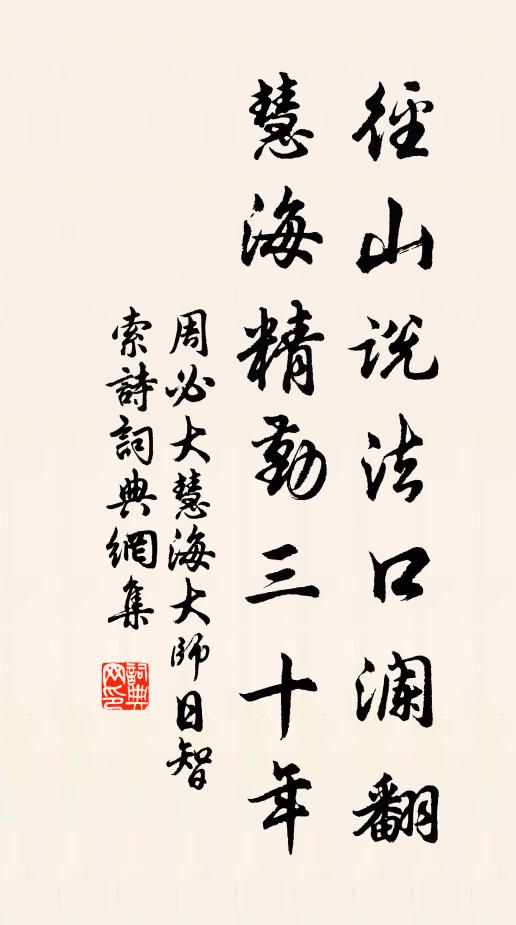 徑山説法口瀾翻
慧海精勤三十年
周必大慧海大师日智
索詩詞典網集
詞典
网印